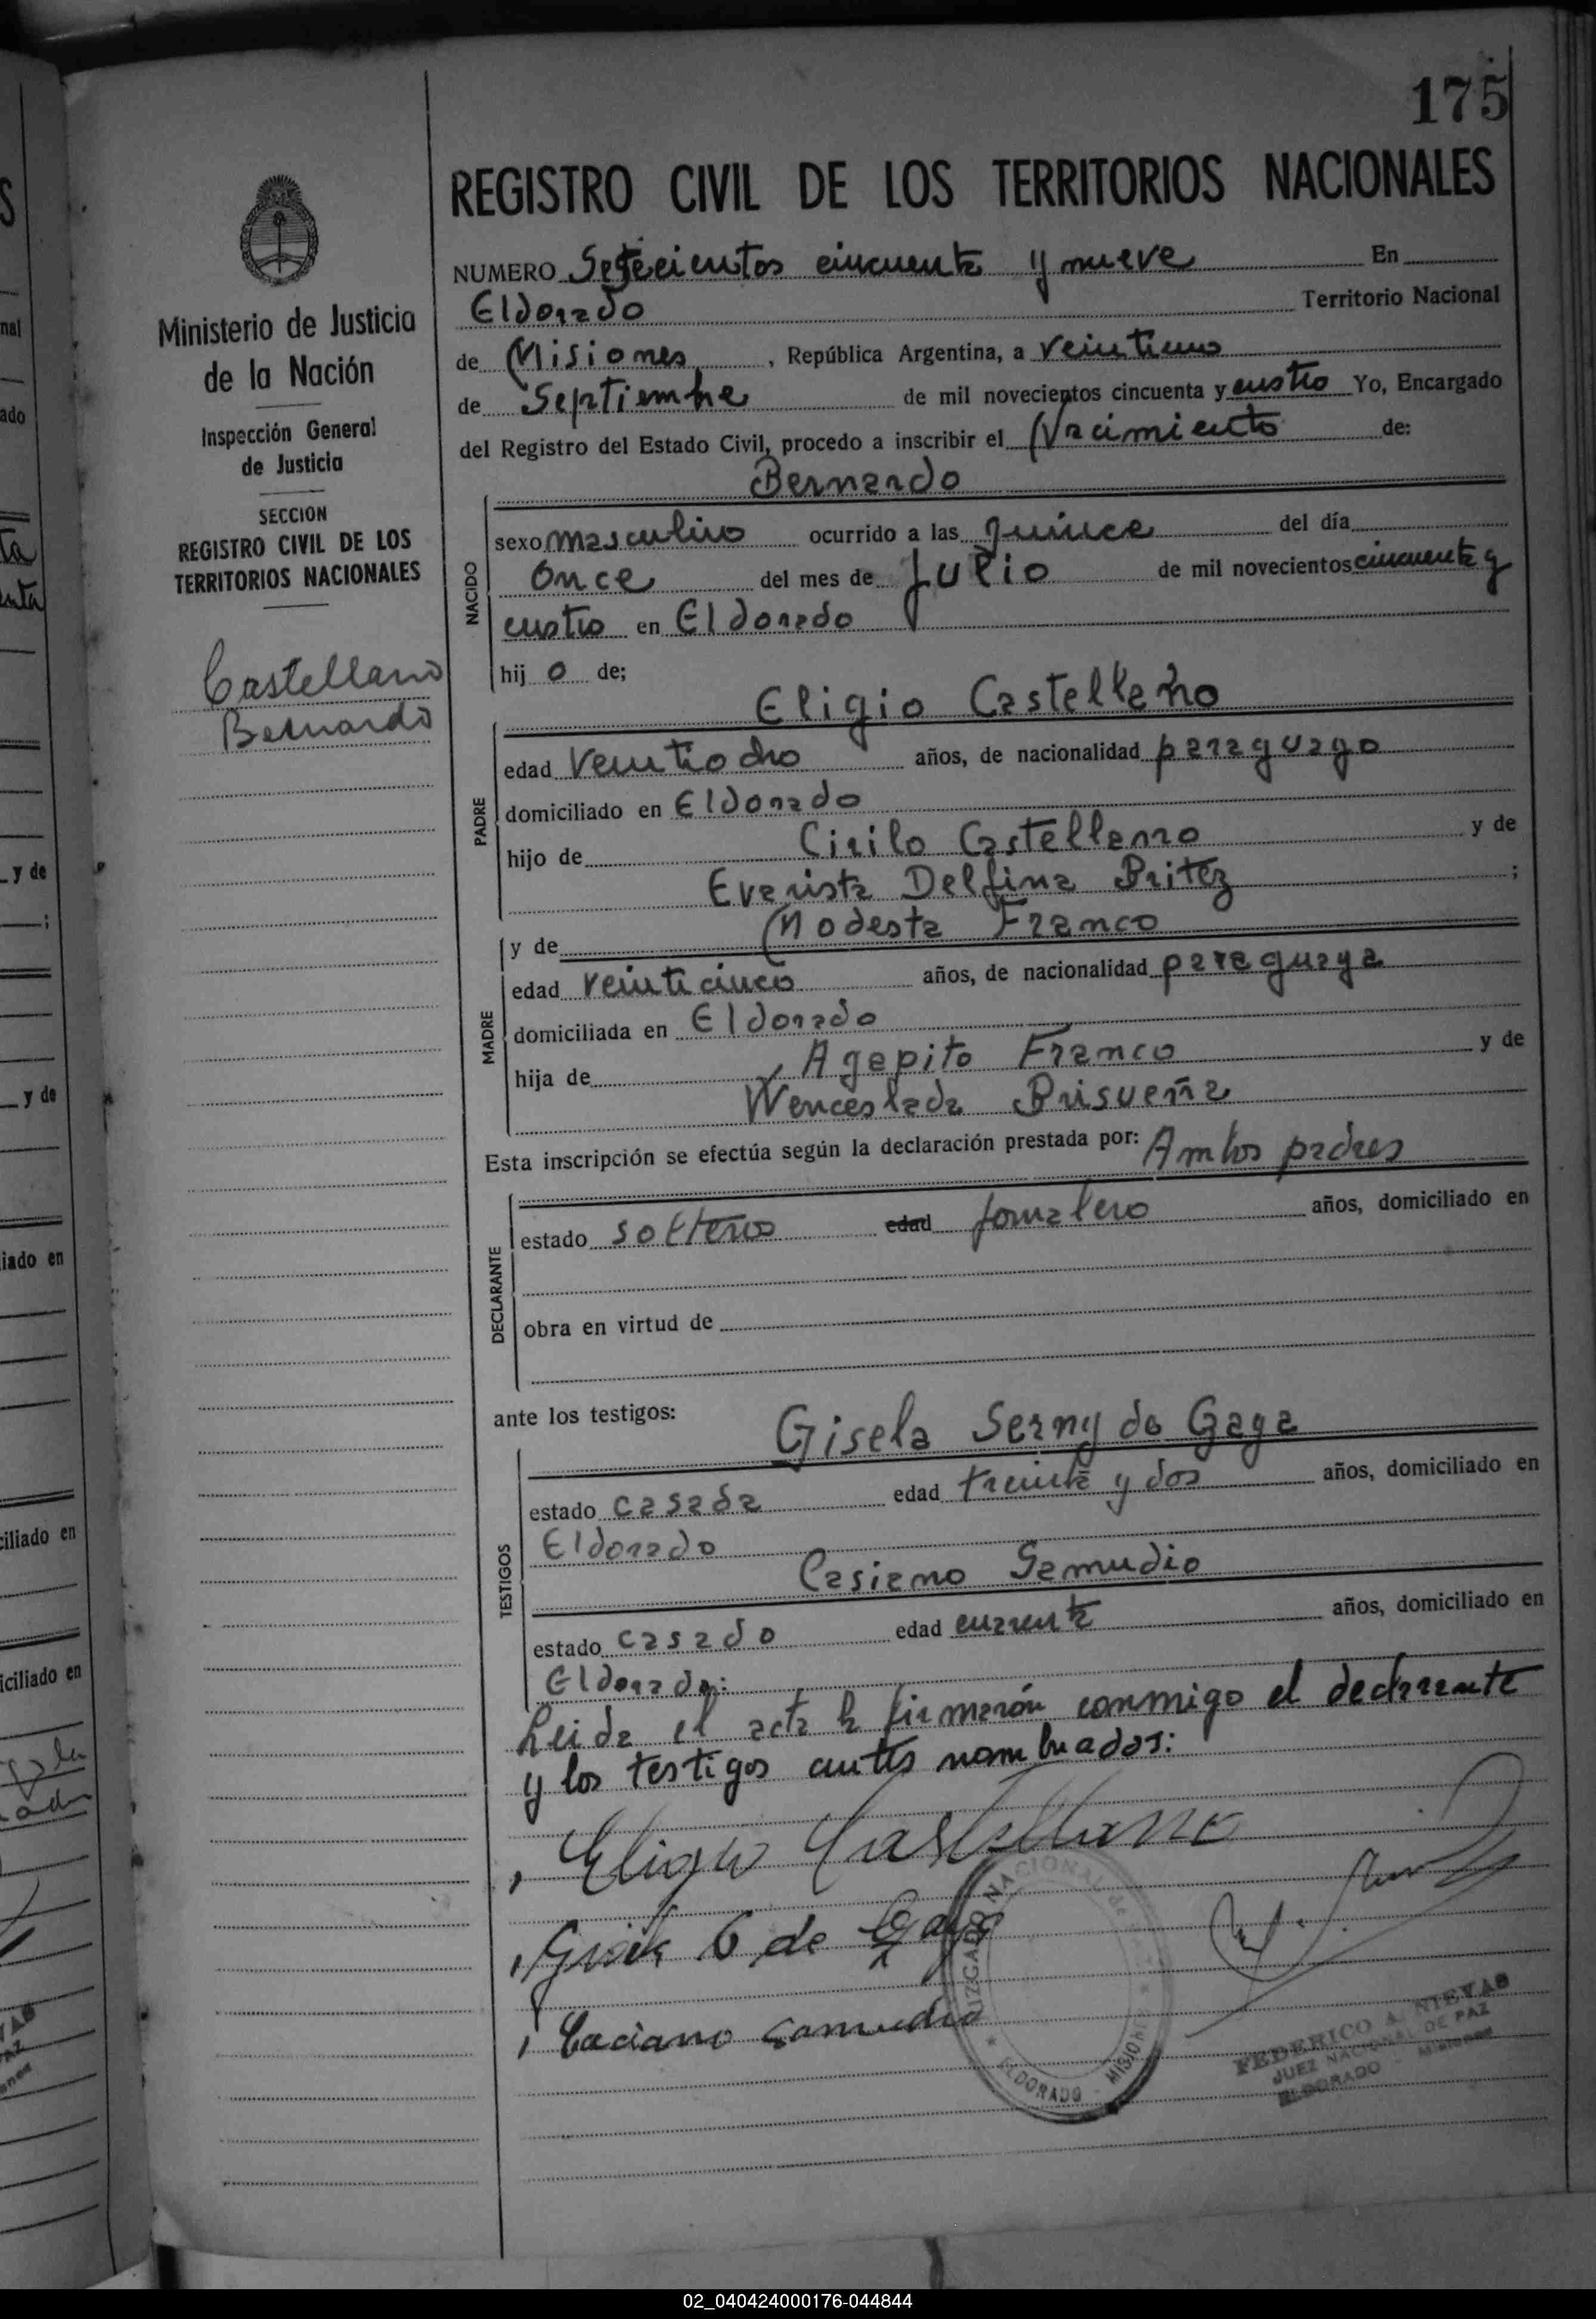 175
REGISTRO CIVIL DE LOS TERRITORIOS NACIONALES
Ministerio de Justicia
de la Nación
Inspección General
de Justicia
SECCION
REGISTRO CIVIL DE LOS
TERRITORIOS NACIONALES
Castellano
Bernardo
NUMERO Setecientos cincuenta y nueve En
Eldorado Territorio Nacional
de Misiones, República Argentina, a veintiuno
de Septiembre de mil novecientos cincuenta y cuatro Yo, Encargado
del Registro del Estado Civil, procedo a inscribir el Nacimiento de:
Bernardo
NACIDO
sexo masculino ocurrido a las quince del día
once del mes de Julio de mil novecientos cincuenta y
cuatro en Eldorado
hij o de;
Eligio Castellano
PADRE
edad veintiocho años, de nacionalidad paraguayo
domiciliado en Eldorado
hijo de Cirilo Castellano y de
Evarista Delfina Britez ;
y de Modesta Franco
MADRE
edad veinticinco años, de nacionalidad paraguaya
domiciliada en Eldorado
hija de Agepito Franco y de
Wenceslada Brisueña
Esta inscripción se efectúa según la declaración prestada por: Ambos padres
DECLARANTE
estado soltero edad jornalero años, domiciliado en
obra en virtud de
ante los testigos:
Gisela Serny de Gaya
TESTIGOS
estado casada edad treinta y dos años, domiciliado en
Eldorado
Casiano Samudio
estado casado edad cuarenta años, domiciliado en
Eldorado:
Leida el acta la firmarón conmigo el declarante
y los testigos antes nombrados:
Eligio Castellano
de Gaya
Caciano Samudio
JUZGADO NACIONAL de
ELDORADO - MISIONES
FEDERICO A. NIEVAS
JUEZ NACIONAL DE PAZ
ELDORADO - Misiones
02_040424000176-044844